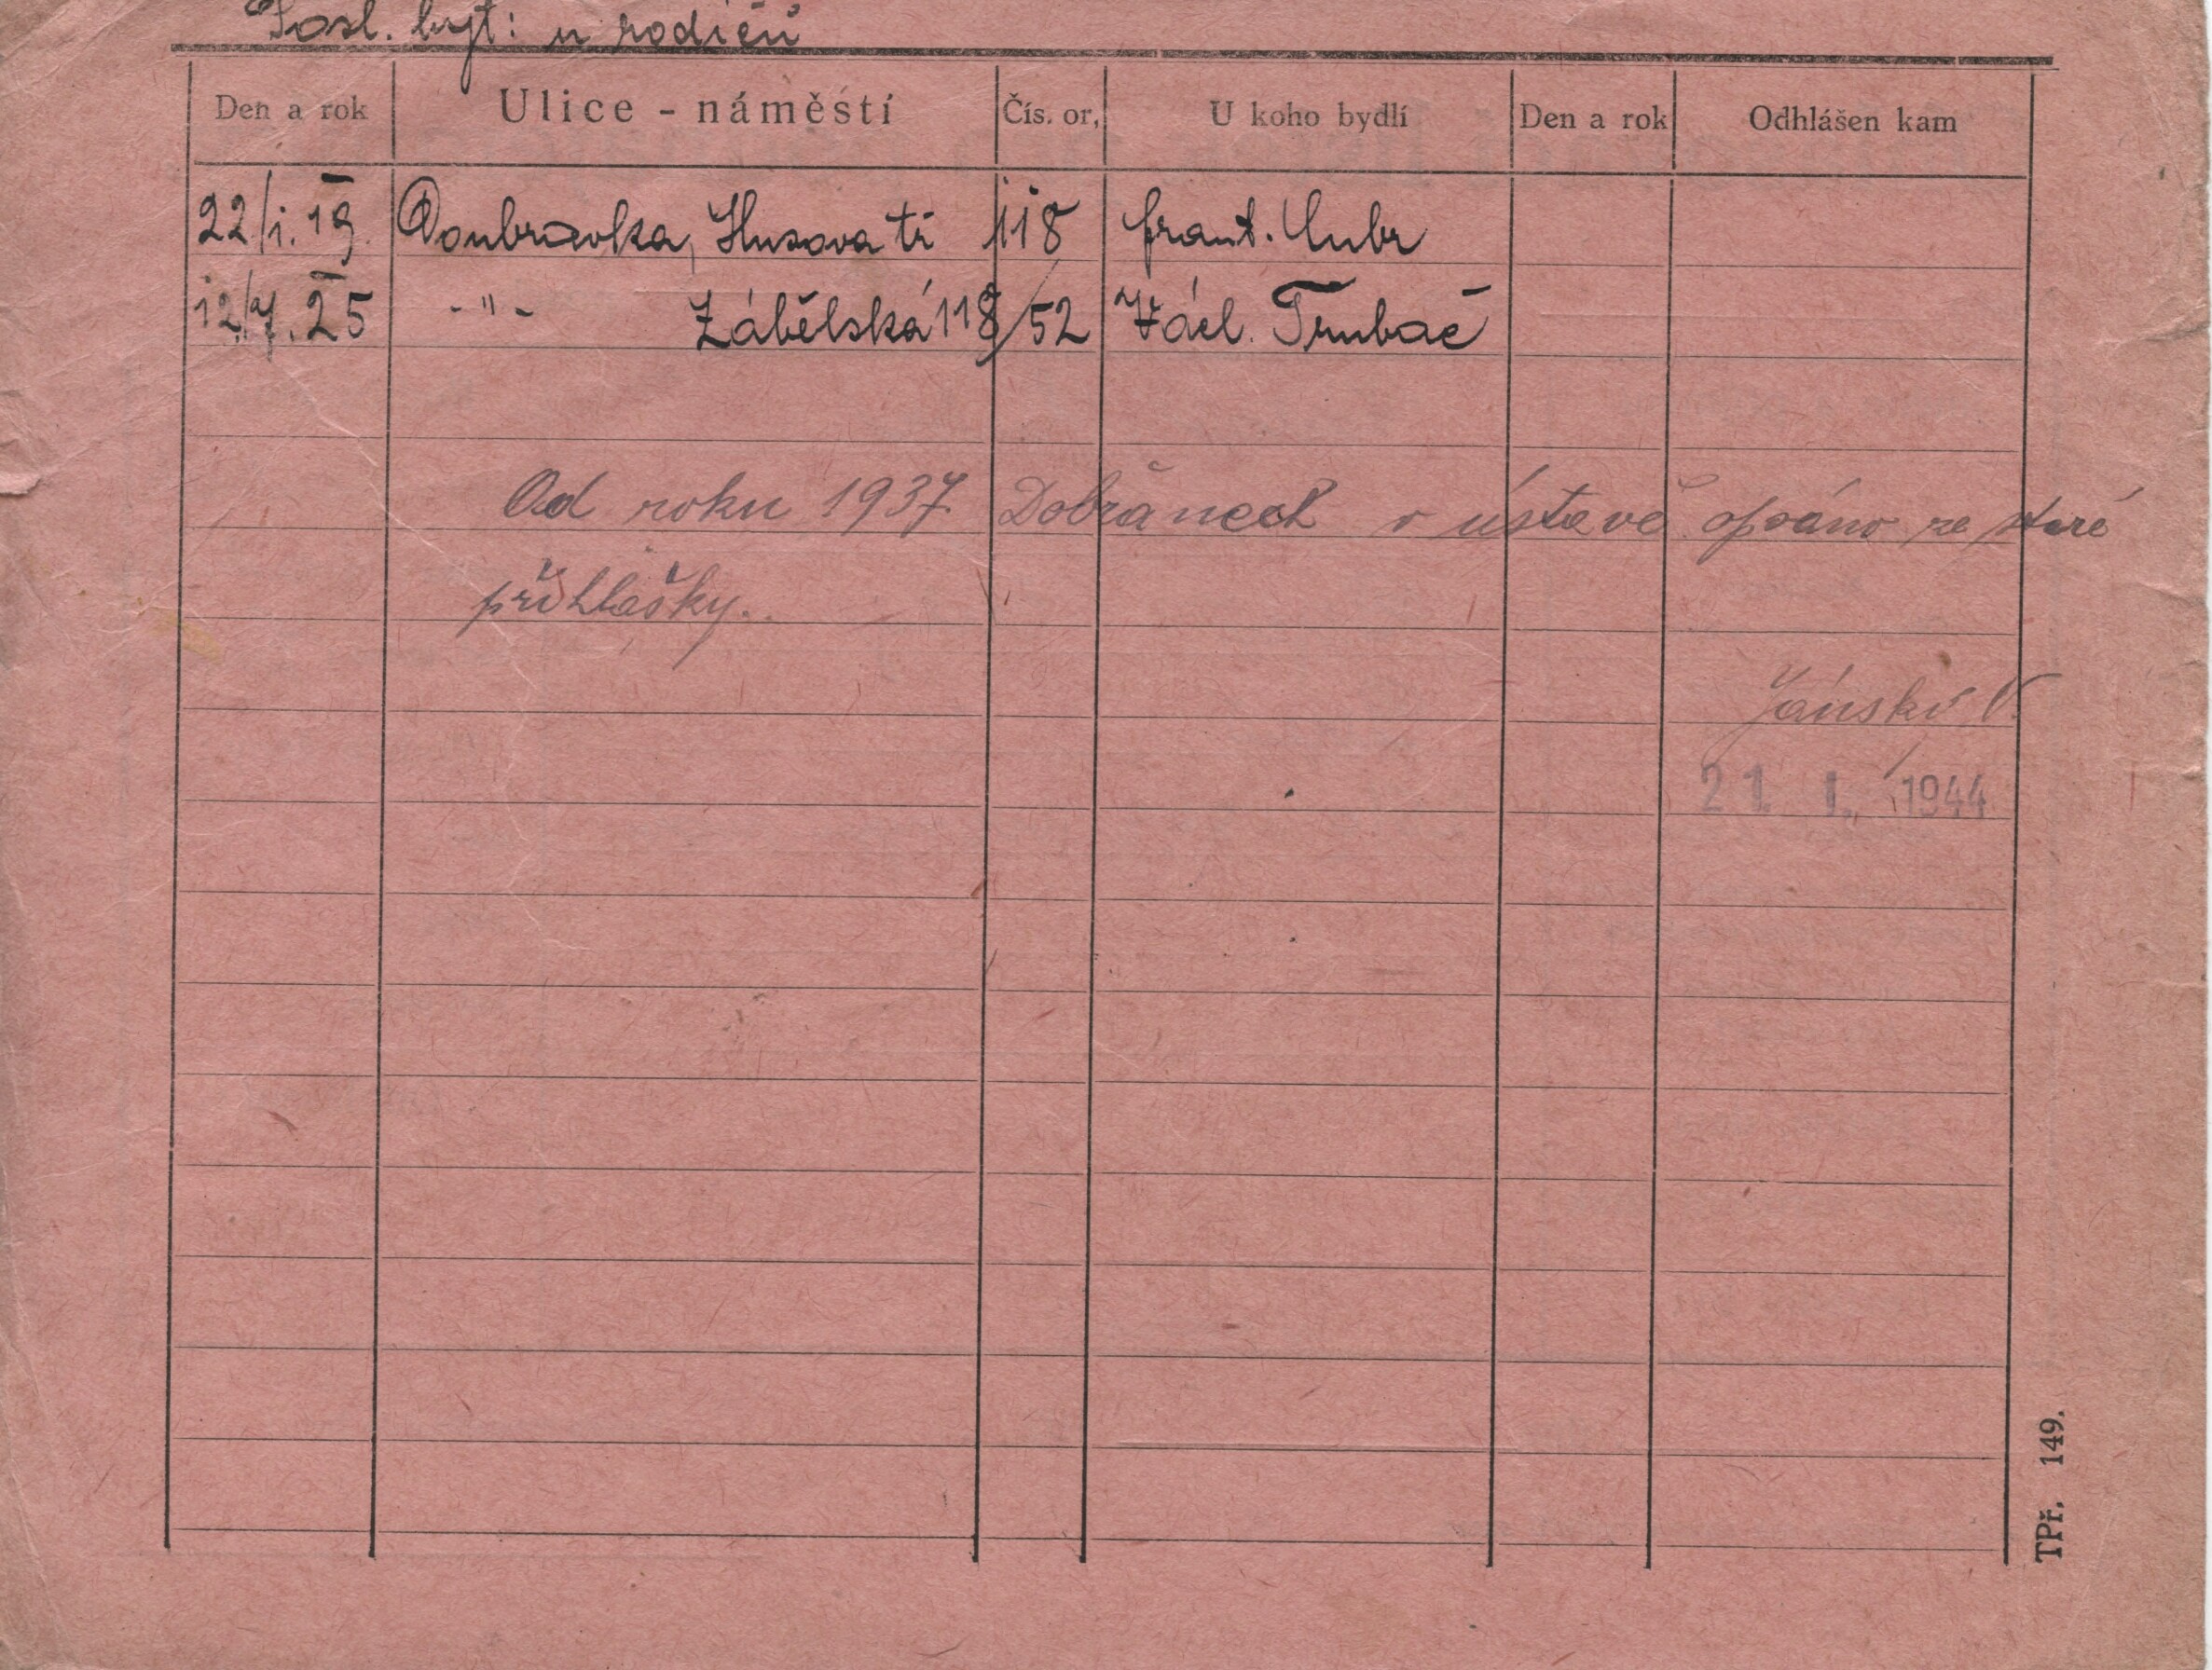 Posl. byt: u rodičů
Den a rok Ulice - náměstí Čís. or. U koho bydlí Den a rok Odhlášen kam
22/1. 19. Doubravka, Husova tř 118 Frant. Cubr
12/7. 25 - " - Zábělská 118/52 Václ. Trubač
Od roku 1937 Dobřanech v ústavě opsáno ze staré
přihlášky.
Jánský V.
21 I. 1944
TPř. 149.